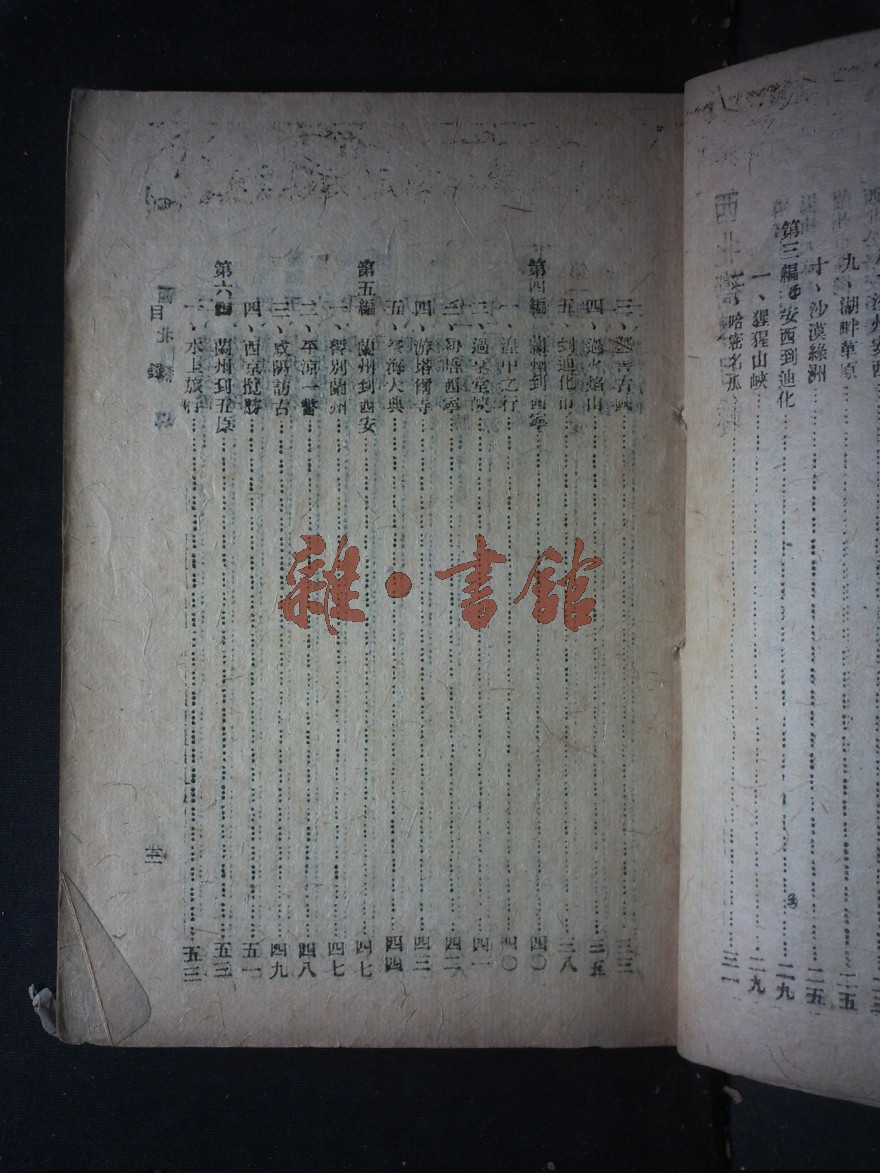 九、湖畔草原……二五
十、沙漠綠洲……二五
第三編 安西到迪化……二九
一、猩猩山峽……二九
二、哈密名瓜……三一
三、……古國……三三
四、過火焰山……三五
五、到迪化市……三八
第四編 蘭州到西寧……四〇
一、湟中之行……四〇
二、過享堂峽……四一
三、……西寧……四二
四、游塔爾寺……四三
五、祭海大典……四四
第五編 蘭州到西安……四七
一、暫別蘭州……四七
二、平涼一瞥……四八
三、咸陽訪古……四九
四、西京攬勝……五一
第六編 蘭州到五原……五三
一、水上旅行……五三
目錄
雜·書館